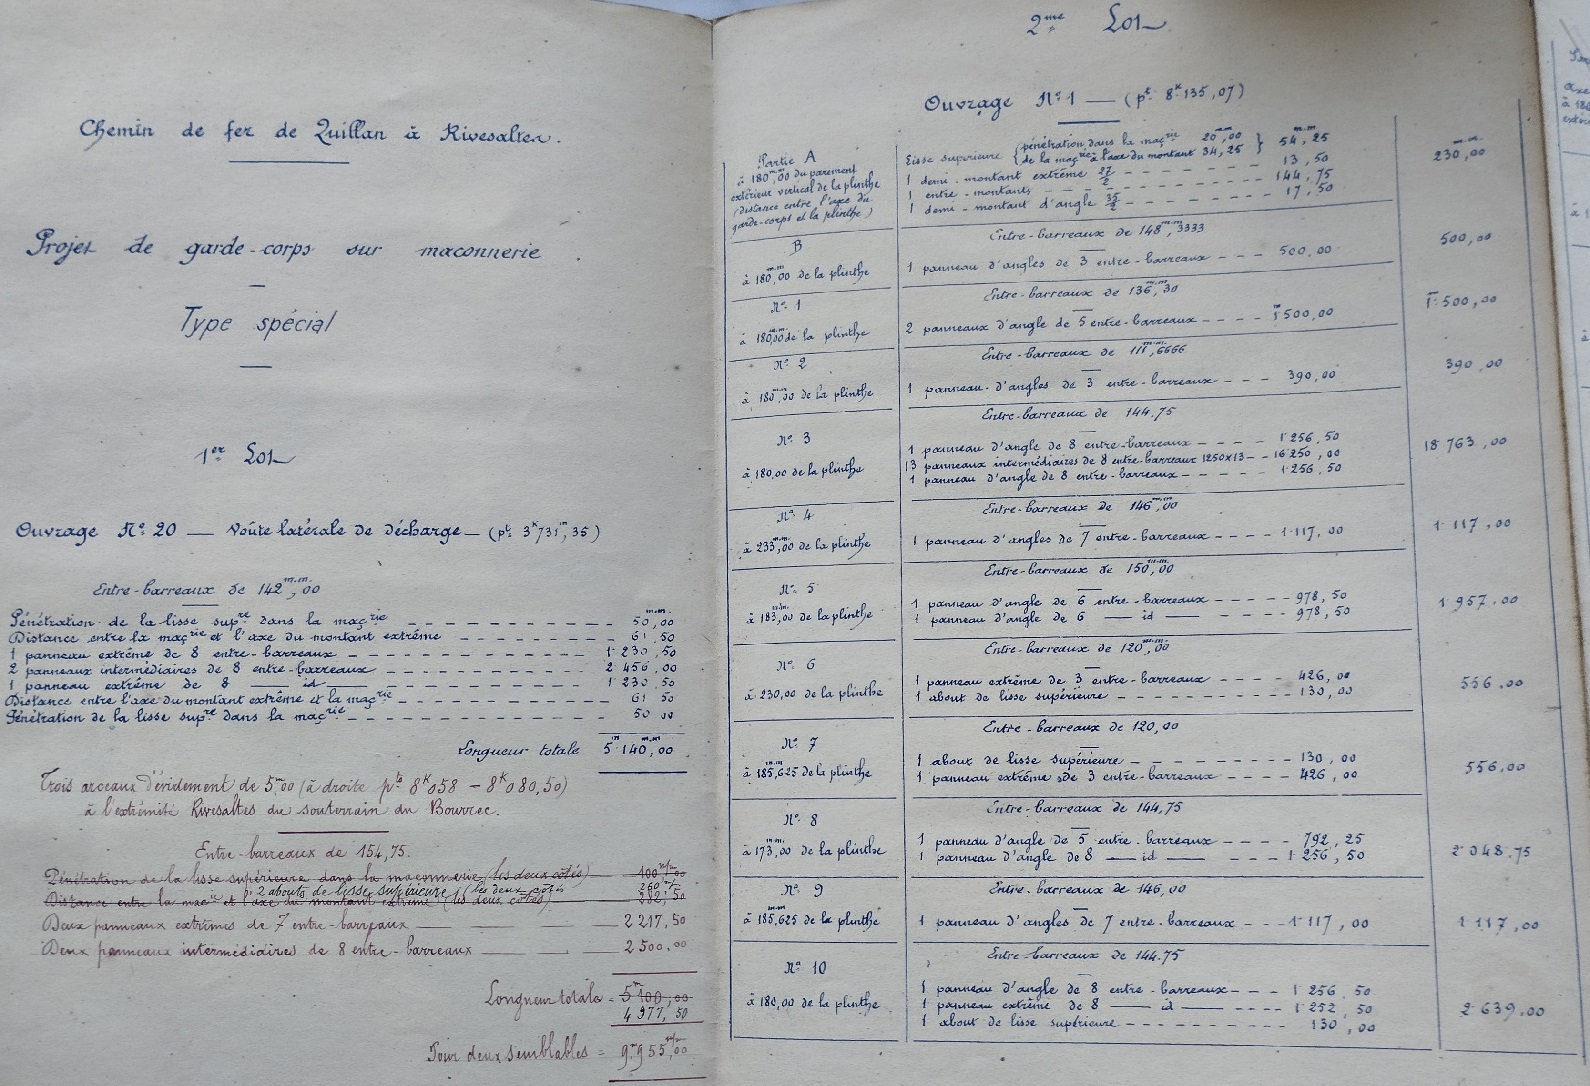 Chemin de fer de Quillan à Rivesaltes.
Projet de garde-corps sur maçonnerie.
Type spécial
1er Lot
Ouvrage No 20 — Voûte latérale de décharge — (pt 3k731m,35)
Entre-barreaux de 142m.m.,00
Pénétration de la lisse supre dans la maçrie 50m.m.,00
Distance entre la maçrie et l'axe du montant extrême 61,50
1 panneau extrême de 8 entre-barreaux 1 230,50
2 panneaux intermédiaires de 8 entre-barreaux 2 456,00
1 panneau extrême de 8 — id — 1 230,50
Distance entre l'axe du montant extrême et la maçrie 61,50
Pénétration de la lisse supre dans la maçrie 50,00
Longueur totale 5m140m.m.,00
Trois arceaux d'évidement de 5m,00 (à droite pts 8k058 – 8k080,50)
à l'extrémité Rivesaltes du souterrain du Bourrec.
Entre-barreaux de 154,75.
Pénétration de la lisse supérieure dans la maçonnerie (les deux côtés) — 100m/m00
2 abouts de lisse supérieure (les deux côtés 260m/m
Distance entre la macie et l'axe du montant extrême (les deux côtés) 282,50
Deux panneaux extrêmes de 7 entre-barreaux — 2 217,50
Deux panneaux intermédiaires de 8 entre-barreaux — 2 500,00
Longueur totale = 5m100,00
4 977,50
Pour deux semblables = 9m955m/m,00
2me Lot
Ouvrage No 1 — (pt 8k135,07)
Partie A
à 180m.m.,00 du parement
extérieur vertical de la plinthe
(distance entre l'axe du
garde-corps et la plinthe)
Lisse supérieure { pénétration dans la maçrie 20m.m.,00 } 54m.m.,25
{ de la maçrie à l'axe du montant 34,25
1 demi-montant extrême 27/2 13,50
1 entre-montants 144,75
1 demi-montant d'angle 35/2 17,50
230m.m.,00
B
à 180m.m.,00 de la plinthe
Entre-barreaux de 148m.m.,3333
1 panneau d'angles de 3 entre-barreaux 500,00
500,00
No 1
à 180m.m.,00 de la plinthe
Entre-barreaux de 136m.m.,30
2 panneaux d'angle de 5 entre-barreaux 1m500,00
1m500,00
No 2
à 180m.m.,00 de la plinthe
Entre-barreaux de 111m.m.,6666
1 panneau d'angles de 3 entre-barreaux 390,00
390,00
No 3
à 180,00 de la plinthe
Entre-barreaux de 144.75
1 panneau d'angle de 8 entre-barreaux 1 256,50
13 panneaux intermédiaires de 8 entre-barreaux 1250x13 16 250,00
1 panneau d'angle de 8 entre-barreaux 1 256,50
18 763,00
No 4
à 233m.m.,00 de la plinthe
Entre-barreaux de 146m.m.,00
1 panneau d'angles de 7 entre-barreaux 1 117,00
1 117,00
No 5
à 183m.m.,00 de la plinthe
Entre-barreaux de 150m.m.,00
1 panneau d'angle de 6 entre-barreaux 978,50
1 panneau d'angle de 6 — id — 978,50
1 957.00
No 6
à 230,00 de la plinthe
Entre-barreaux de 120m.m.,00
1 panneau extrême de 3 entre-barreaux 426,00
1 about de lisse supérieure 130,00
556,00
No 7
à 185m.m.,625 de la plinthe
Entre-barreaux de 120,00
1 about de lisse supérieure 130,00
1 panneau extrême de 3 entre-barreaux 426,00
556,00
No 8
à 173m.m.,00 de la plinthe
Entre-barreaux de 144,75
1 panneau d'angle de 5 entre-barreaux 792,25
1 panneau d'angle de 8 — id — 1 256,50
2 048.75
No 9
à 185m.m.,625 de la plinthe
Entre-barreaux de 146,00
1 panneau d'angles de 7 entre-barreaux 1 117,00
1 117,00
No 10
à 180,00 de la plinthe
Entre-barreaux de 144.75
1 panneau d'angle de 8 entre-barreaux 1 256,50
1 panneau extrême de 8 — id — 1 252,50
1 about de lisse supérieure 130,00
2 639.00